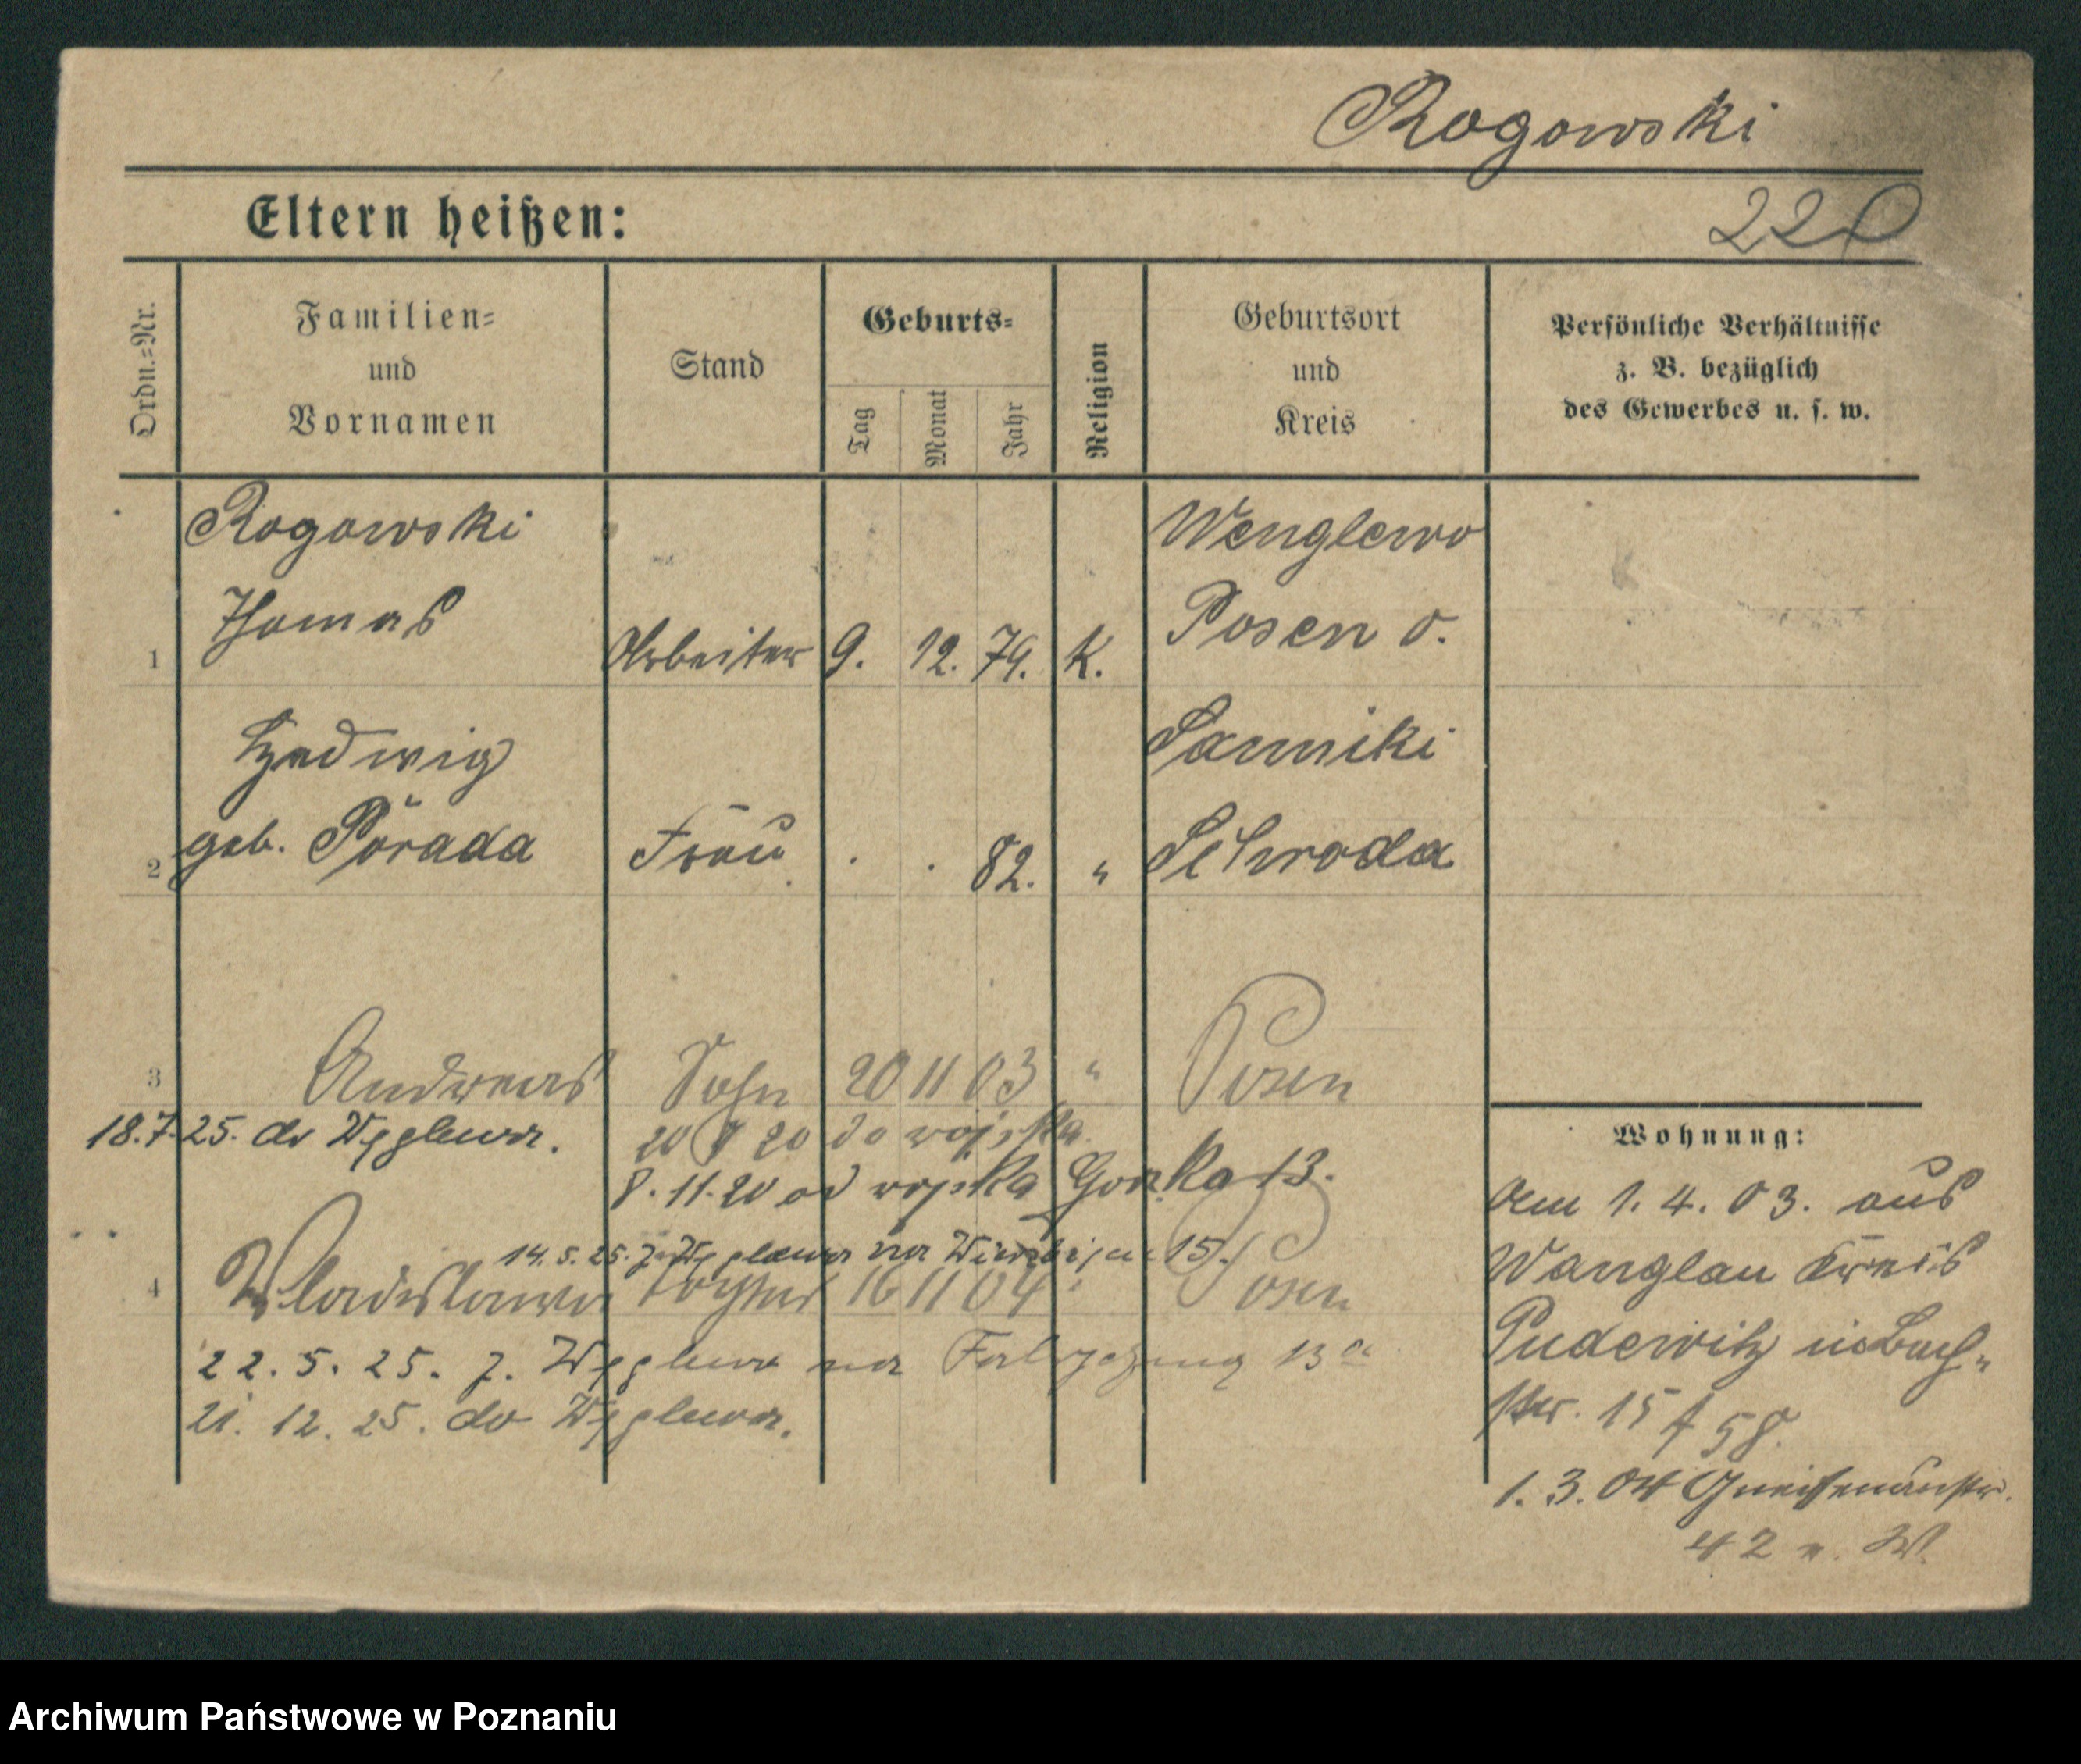 Rogowski
Eltern heißen:
220
Ordn.=Nr.
Familien=
und
Vornamen
Stand
Geburts=
Tag
Monat
Jahr
Religion
Geburtsort
und
Kreis
Persönliche Verhältnisse
z. B. bezüglich
des Gewerbes u. s. w.
Rogowski
Thomas
1
Arbeiter 9. 12. 79. K.
Wenglewo
Posen o.
Hedwig
geb. Porada
2
Frau . . 82. "
Sanniki
Schroda
3 Andreas Sohn 20 11 03 " Posen
18.7.25. do Węglewa.
20 20 do wojska
8.11.20 od wojska Gorka 13.
14.5.25. z Węglewa na 15.
4 Wladislawa Tochter 16 11 04 " Posen
22.5.25. z. Węglewa na 13a
21.12.25. do Węglewa.
Wohnung:
Am 1.4.03. aus
Wanglau Kreis
Pudewitz
15 58.
1.3.04 Gneisenaustr.
42 n. W.
Archiwum Państwowe w Poznaniu